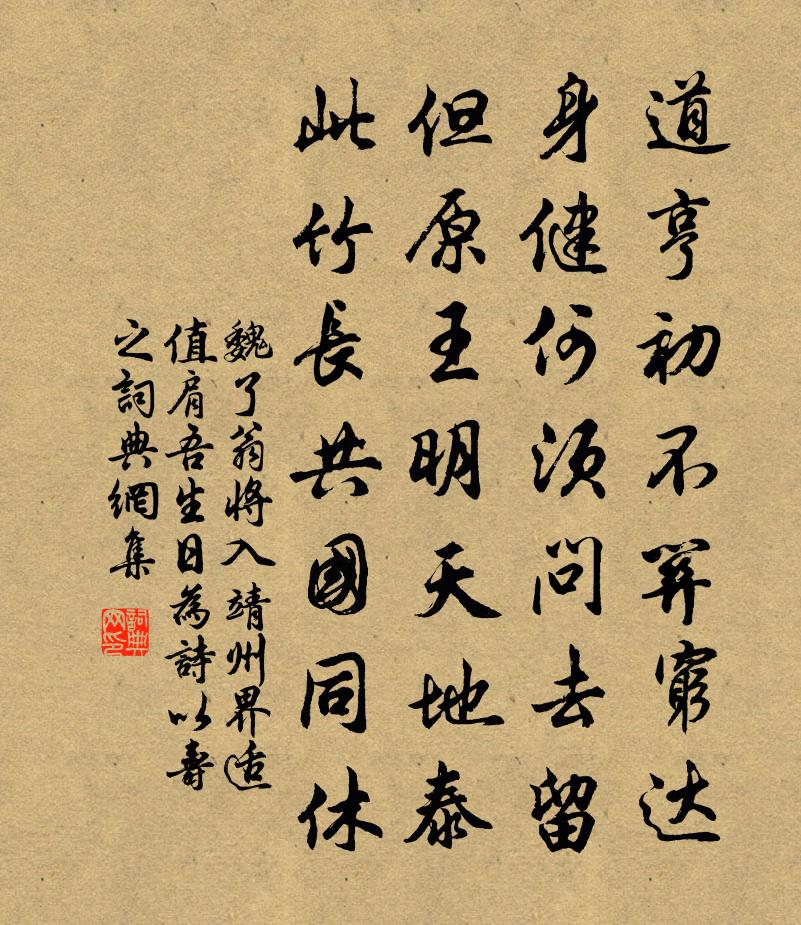 道亨初不算窮达
身健何須問去留
但原王明天地泰
此竹長共國同休
魏了翁將入靖州界适
值肩吾生日為詩以壽
之詞典網集
詞典网印